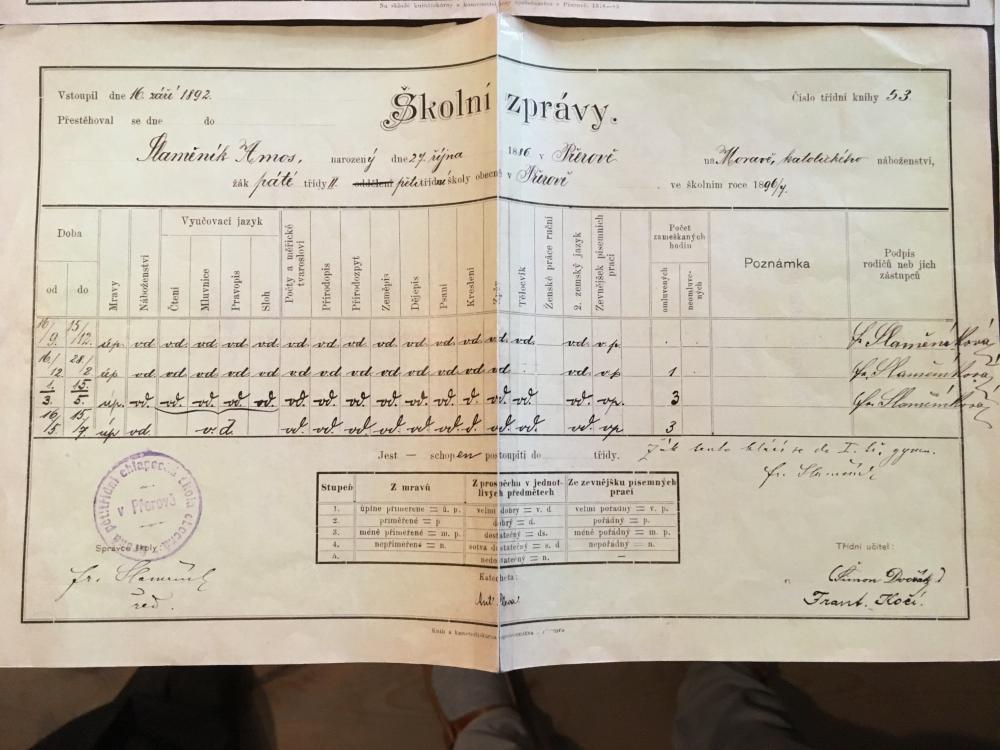 Na skladě knihtiskárny a kamenotiskárny společenstva v Přerově.
Vstoupil dne 16. září 1892.
Školní zprávy.
Číslo třídní knihy 53
Přestěhoval se dne do
Slaměník Amos, narozený dne 27. října 1886 v Přerově na Moravě, katolického náboženství,
žák páté třídy II. oddělení pětitřídní školy obecné v Přerově, ve školním roce 1896/7.
Doba
od do
Mravy
Náboženství
Vyučovací jazyk
Čtení
Mluvnice
Pravopis
Sloh
Počty a měřické tvarosloví
Přírodopis
Přírodozpyt
Zeměpis
Dějepis
Psaní
Kreslení
Zpěv
Tělocvik
Ženské práce ruční
2. zemský jazyk
Zevnějšek písemných prací
Počet zameškaných hodin
omluvených
neomluvených
Poznámka
Podpis rodičů neb jich zástupců
16/9. 15/12. úp. vd. vd. vd. vd. vd. vd. vd. vd. vd. vd. vd. vd. vd. vd. vd. v.p. . . fr. Slaměníková
16/12. 28/2 úp vd vd vd vd vd vd vd vd vd vd vd vd vd vd. vd. vp 1 fr. Slaměníková
1./3. 15./5. úp. vd. vd. vd. vd. vd. vd. vd. vd. vd. vd. vd. d. vd. vd. vd. vp. 3 fr. Slaměníková
16/5. 15/7. úp vd. v.d. vd. vd. vd. vd. vd. vd. d. vd. vd. vd. vp 3
Jest — schopen postoupiti do třídy.
Žák tento hlásí se do I. tř. gymn.
fr. Slaměník
Stupeň Z mravů Z prospěchu v jednotlivých předmětech Ze zevnějšku písemných prací
1. úplně přiměřené = ú. p. velmi dobrý = v. d. velmi pořádný = v. p.
2. přiměřené = p dobrý = d. pořádný = p.
3. méně přiměřené = m. p. dostatečný = ds. méně pořádný = m. p.
4. nepřiměřené = n. sotva dostatečný = s. d nepořádný = n.
5. nedostatečný = n. —
pětitřídní chlapecká škola obecná
v Přerově
Správce školy:
fr. Slaměník
řed.
Katecheta:
Ant.
Třídní učitel:
(Šimon Dvořák)
Frant. Kočí.